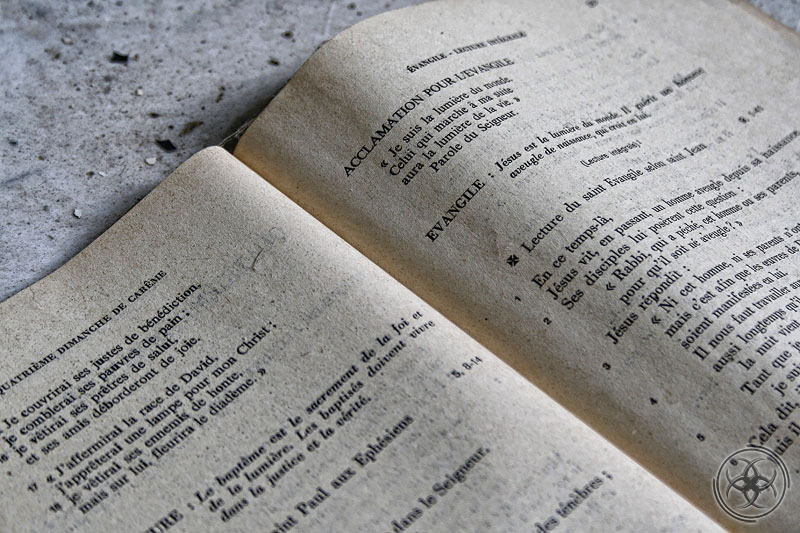 QUATRIÈME DIMANCHE DE CARÊME
Je couvrirai ses justes de bénédiction,
je comblerai ses pauvres de pain ;
je vêtirai ses prêtres de saint,
et ses amis déborderont de joie.
17 « J'affermirai la race de David,
j'apprêterai une lampe pour mon Christ ;
je vêtirai ses ennemis de honte,
mais sur lui, fleurira le diadème. »
URE : Le baptême est le sacrement de la foi et
de la lumière. Les baptisés doivent vivre
dans la justice et la vérité.
5, 8-14
int Paul aux Ephésiens
dans le Seigneur.
les ténèbres ;
ÉVANGILE - LECTURE INTÉGRALE
ACCLAMATION POUR L'EVANGILE
« Je suis la lumière du monde.
Celui qui marche à ma suite
aura la lumière de la vie. »
Parole du Seigneur.
EVANGILE : Jésus est la lumière du monde. Il guérit un
aveugle de naissance, qui croit en lui.
(Lecture intégrale)
Lecture du saint Evangile selon saint Jean
1 En ce temps-là,
Jésus vit, en passant, un homme aveugle depuis sa naissance
2 Ses disciples lui posèrent cette question :
« Rabbi, qui a péché, cet homme ou ses parents,
pour qu'il soit né aveugle ? »
3 Jésus répondit :
« Ni cet homme, ni ses parents n'ont
mais c'est afin que les œuvres de
soient manifestées en lui.
4 Il nous faut travailler
aussi longtemps qu'il
la nuit vient
5 Tant que
je suis
Cela dit,